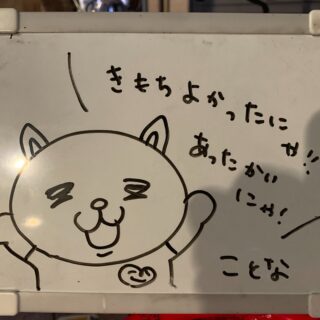 きもちよかったに
ゃ!!
あったかい
にゃ!
ことな